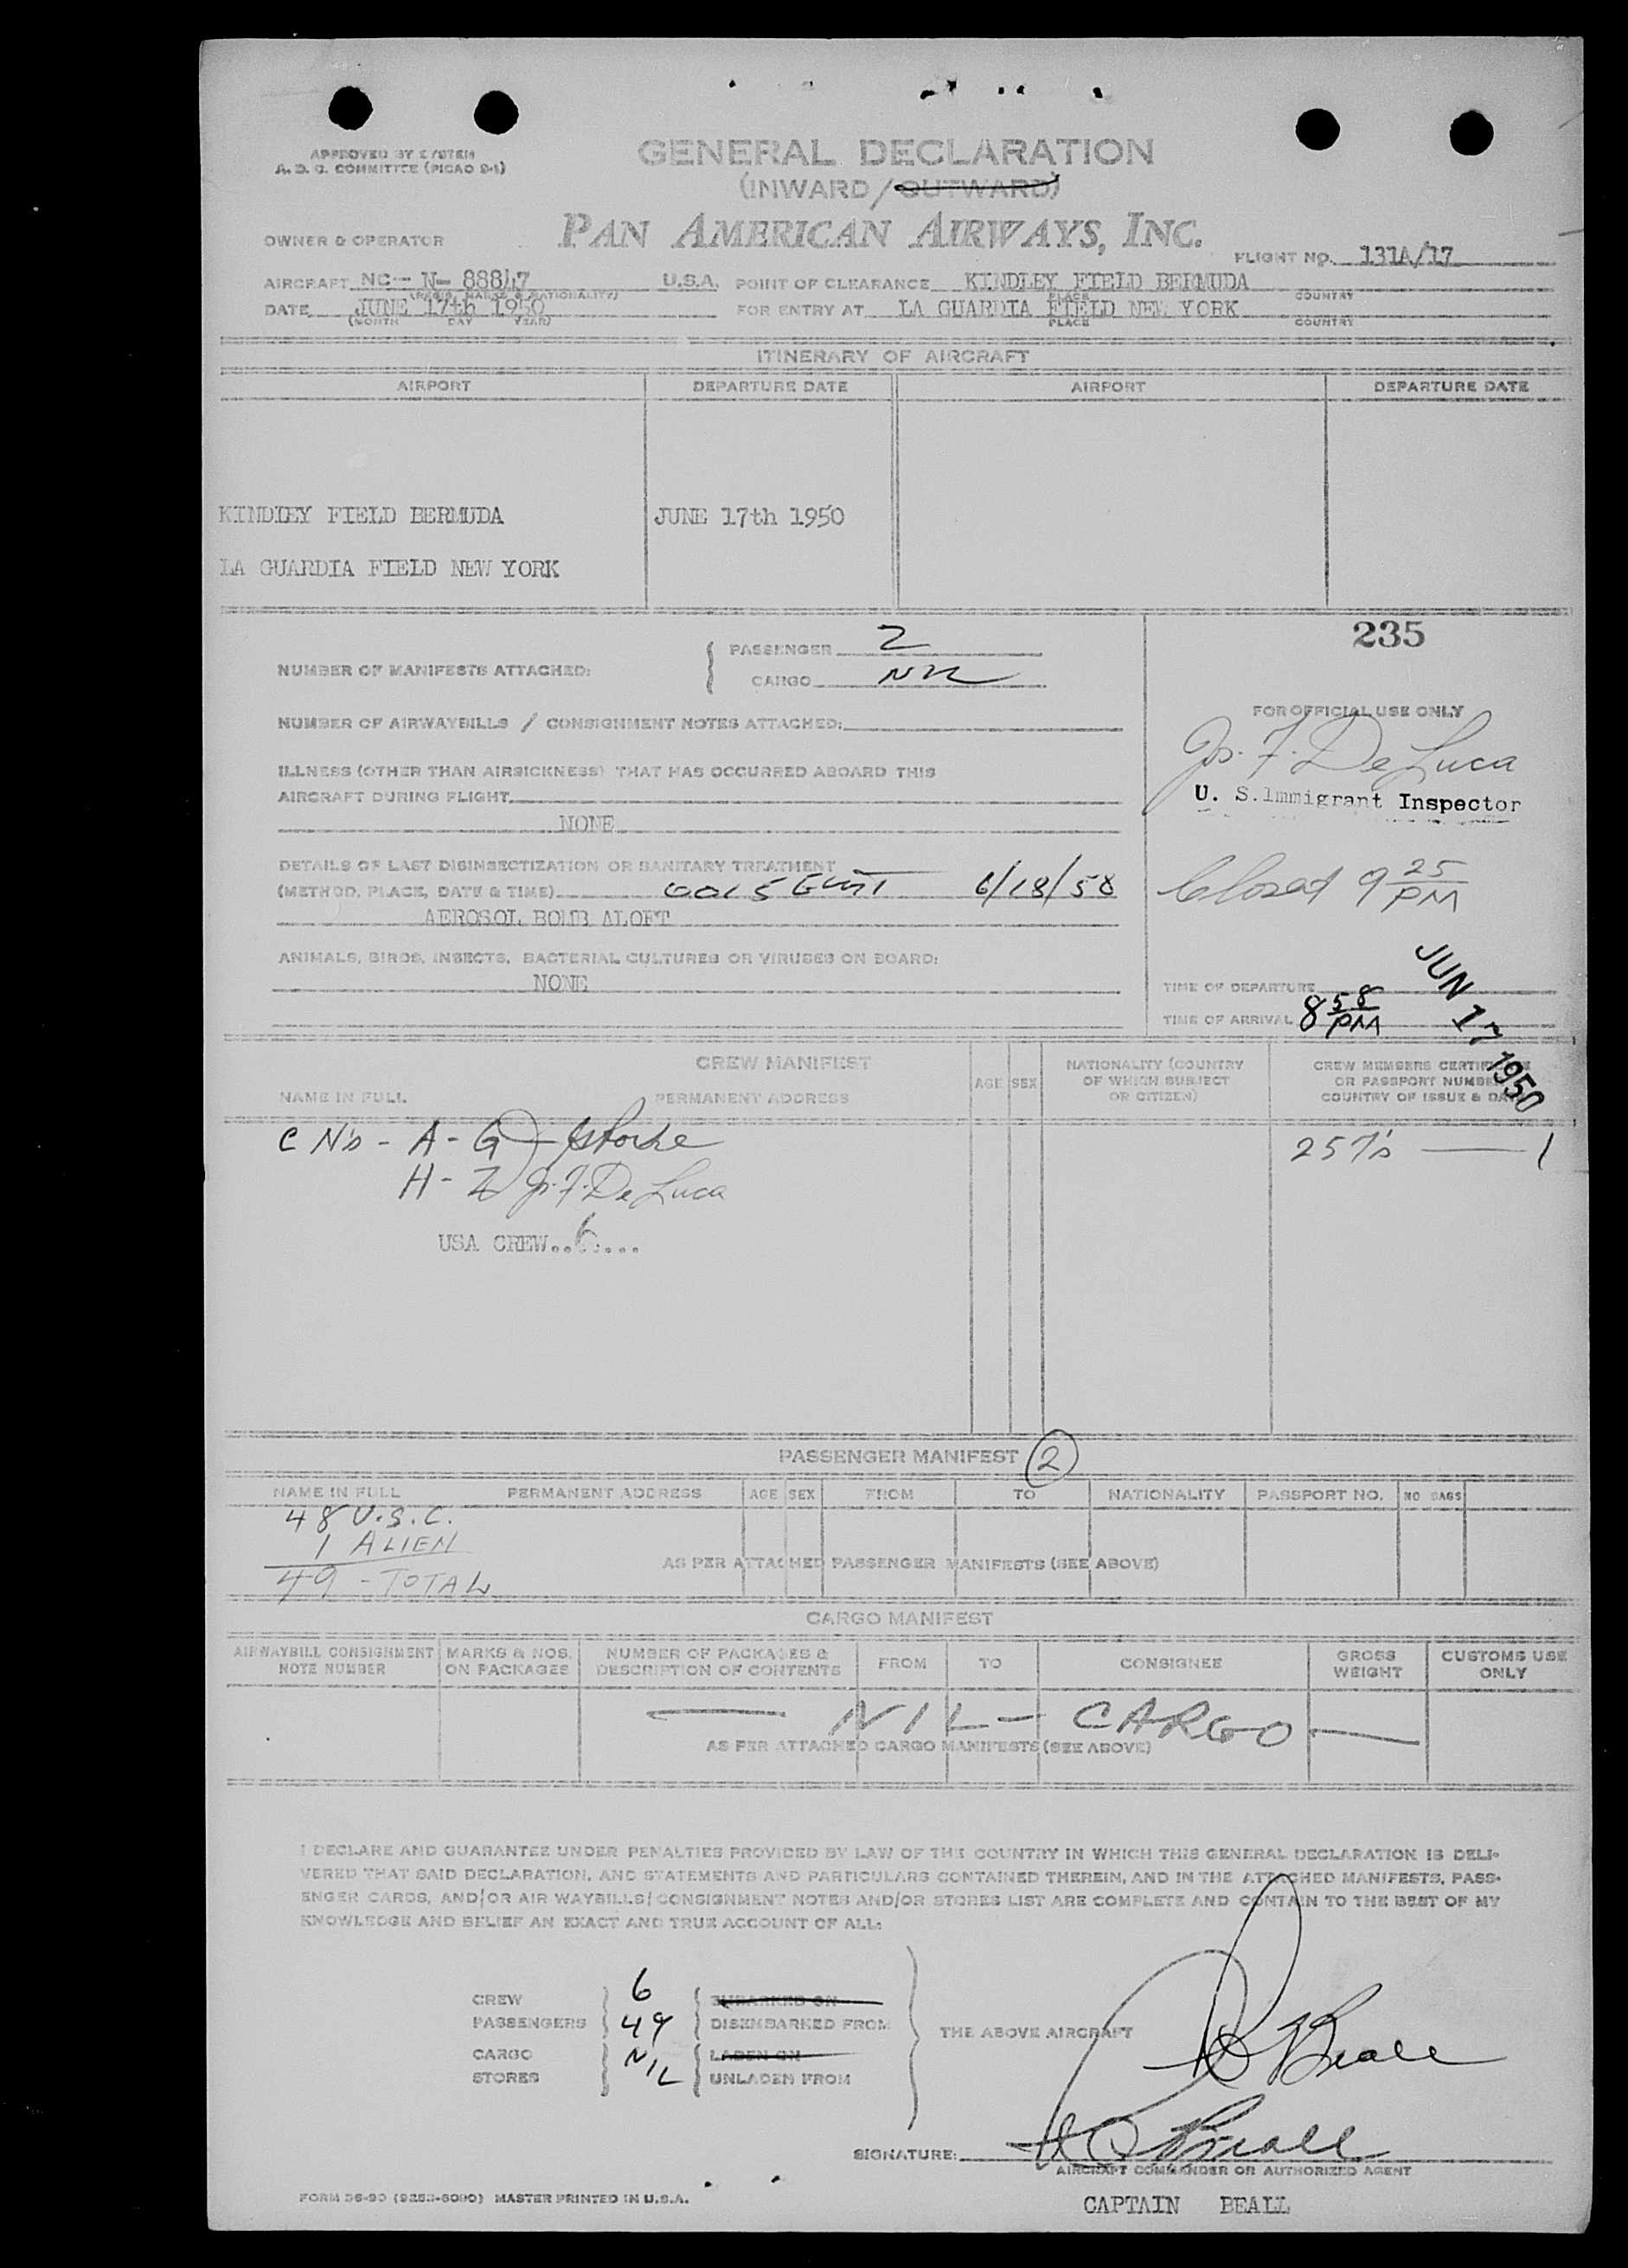 APPROVED BY SYSTEM
A. D. C. COMMITTEE (PICAO 2-1)
GENERAL DECLARATION
(INWARD/OUTWARD)
OWNER & OPERATOR
PAN AMERICAN AIRWAYS, INC.
FLIGHT NO. 131A/17
AIRCRAFT NC-- N- 88847 U.S.A. POINT OF CLEARANCE KINDLEY FIELD BERMUDA
(REGIS. MARKS & NATIONALITY) PLACE COUNTRY
DATE JUNE 17th 1950 FOR ENTRY AT LA GUARDIA FIELD NEW YORK
(MONTH DAY YEAR) PLACE COUNTRY
ITINERARY OF AIRCRAFT
AIRPORT DEPARTURE DATE AIRPORT DEPARTURE DATE
KINDLEY FIELD BERMUDA JUNE 17th 1950
LA GUARDIA FIELD NEW YORK
235
NUMBER OF MANIFESTS ATTACHED:
PASSENGER 2
CARGO NIL
NUMBER OF AIRWAYBILLS / CONSIGNMENT NOTES ATTACHED:
FOR OFFICIAL USE ONLY
Jos. F. De Luca
U. S. Immigrant Inspector
ILLNESS (OTHER THAN AIRSICKNESS) THAT HAS OCCURRED ABOARD THIS
AIRCRAFT DURING FLIGHT
NONE
DETAILS OF LAST DISINSECTIZATION OR SANITARY TREATMENT
(METHOD, PLACE, DATE & TIME) 0015 GMT 6/18/50
AEROSOL BOMB ALOFT
Closed 9 25 PM
ANIMALS, BIRDS, INSECTS, BACTERIAL CULTURES OR VIRUSES ON BOARD:
NONE
TIME OF DEPARTURE
TIME OF ARRIVAL 8 58 PM
JUN 17 1950
CREW MANIFEST
NAME IN FULL PERMANENT ADDRESS AGE SEX NATIONALITY (COUNTRY OF WHICH SUBJECT OR CITIZEN) CREW MEMBERS CERTIFICATE OR PASSPORT NUMBER COUNTRY OF ISSUE & DATE
C N's - A - G
H - Z Js. F. De Luca
257's — 1
USA CREW..6....
PASSENGER MANIFEST 2
NAME IN FULL PERMANENT ADDRESS AGE SEX FROM TO NATIONALITY PASSPORT NO. NO BAGS
48 U.S.C.
1 ALIEN
49 - TOTAL
AS PER ATTACHED PASSENGER MANIFESTS (SEE ABOVE)
CARGO MANIFEST
AIRWAYBILL CONSIGNMENT NOTE NUMBER MARKS & NOS. ON PACKAGES NUMBER OF PACKAGES & DESCRIPTION OF CONTENTS FROM TO CONSIGNEE GROSS WEIGHT CUSTOMS USE ONLY
— NIL — CARGO —
AS PER ATTACHED CARGO MANIFESTS (SEE ABOVE)
I DECLARE AND GUARANTEE UNDER PENALTIES PROVIDED BY LAW OF THE COUNTRY IN WHICH THIS GENERAL DECLARATION IS DELI-
VERED THAT SAID DECLARATION, AND STATEMENTS AND PARTICULARS CONTAINED THEREIN, AND IN THE ATTACHED MANIFESTS, PASS-
ENGER CARDS, AND/OR AIR WAYBILLS/CONSIGNMENT NOTES AND/OR STORES LIST ARE COMPLETE AND CONTAIN TO THE BEST OF MY
KNOWLEDGE AND BELIEF AN EXACT AND TRUE ACCOUNT OF ALL:
CREW 6 EMBARKED ON
PASSENGERS 49 DISEMBARKED FROM
THE ABOVE AIRCRAFT
CARGO NIL LADEN ON
STORES UNLADEN FROM
Beall
SIGNATURE: Beall
AIRCRAFT COMMANDER OR AUTHORIZED AGENT
FORM 36-90 MASTER PRINTED IN U.S.A.
CAPTAIN BEALL